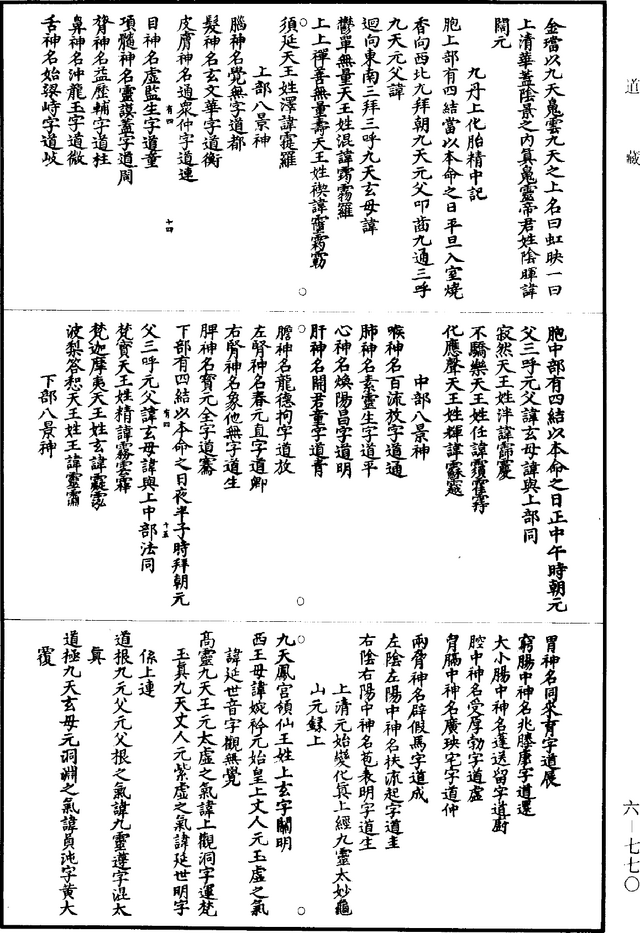 道藏
金璫以九天鬼雲九天之上名曰虹映一曰
上清華蓋陰景之內真鬼靈帝君姓陰暉諱
闊元
九丹上化胎精中記
胞上部有四結當以本命之日平旦入室燒
香向西北九拜朝九天元父叩齒九通三呼
九天元父諱
迴向東南三拜三呼九天玄母諱
鬱單無量天王姓混諱霧羅
上上禪善無量壽天王姓禊諱
須延天王姓澤諱霳羅
上部八景神
腦神名覺無字道都
髮神名玄文華字道衡
皮膚神名通眾仲字道連
有四 十四
目神名虛監生字道童
項髓神名靈謨蓋字道周
膂神名益歷輔字道柱
鼻神名沖龍玉字道微
舌神名始梁峙字道岐
胞中部有四結以本命之日正中午時朝元
父三呼元父諱玄母諱與上部同
寂然天王姓泮諱
不驕樂天王姓任諱
化應聲天王姓輝諱
中部八景神
喉神名百流放字道通
肺神名素靈生字道平
心神名煥陽昌字道明
肝神名開君童字道青
膽神名龍德拘字道放
左腎神名春元直字道卿
右腎神名象他無字道生
脾神名寶元全字道騫
下部有四結以本命之日夜半子時拜朝元
有四 十五
父三呼元父諱玄母諱與上中部法同
梵寶天王姓精諱霧雲霏
梵迦摩夷天王姓玄諱
波梨答惒天王姓王諱靈
下部八景神
胃神名同來育字道展
窮腸中神名兆滕康字道還
大小腸中神名蓬送留字道廚
腔中神名受厚勃字道虛
胷膈中神名廣瑛宅字道仲
兩脅神名辟假馬字道成
左陰左陽中神名扶流起字道圭
右陰右陽中神名苞表明字道生
上清元始變化真上經九靈太妙龜
山元錄上
九天鳳宮領仙王姓上玄字關明
西王母諱婉衿元始皇上丈人元玉虛之氣
諱延世音字觀無覺
高靈九天王元太虛之氣諱上觀洞字運梵
玉真九天丈人元紫虛之氣諱延世明字
係上連
道根九元父元父根之氣諱九靈遵字混太
真
道極九天玄母元洞淵之氣諱員沌字黃大
覆
六—七七〇